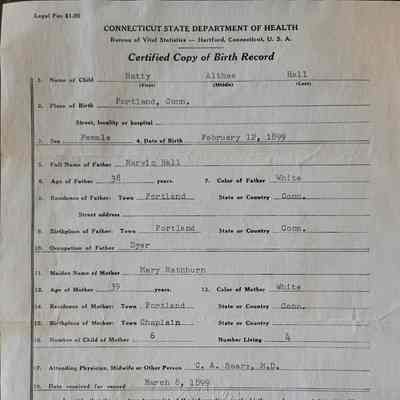 Legal Fee $1.00
CONNECTICUT STATE DEPARTMENT OF HEALTH
Bureau of Vital Statistics — Hartford, Connecticut, U. S. A.
Certified Copy of Birth Record
1. Name of Child Hatty Althea Hall
(First) (Middle) (Last)
2. Place of Birth Portland, Conn.
Street, locality or hospital
3. Sex Female 4. Date of Birth February 12, 1899
5. Full Name of Father Marvin Hall
6. Age of Father 38 years. 7. Color of Father White
8. Residence of Father: Town Portland State or Country Conn.
Street address
9. Birthplace of Father: Town Portland State or Country Conn.
10. Occupation of Father Dyer
11. Maiden Name of Mother Mary Rathburn
12. Age of Mother 39 years. 13. Color of Mother White
14. Residence of Mother: Town Portland State or Country Conn.
15. Birthplace of Mother: Town Chaplain State or Country
16. Number of Child of Mother 6 Number Living 4
17. Attending Physician, Midwife or Other Person C. A. Sears, M.D.
18. Date received for record March 6, 1899